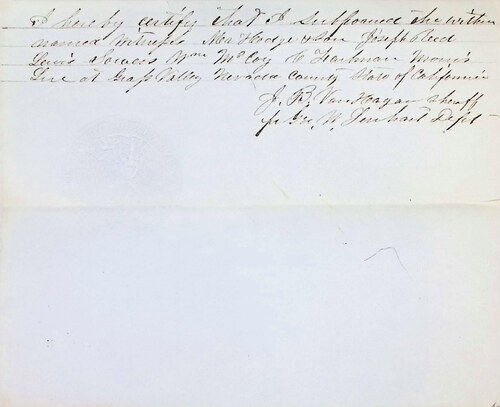 I hereby certify that I Subpoenaed the within
named Witness Hodge & Son Joseph Reed
Lewis Wm McCoy C Morris
Lee at Grass Valley Nevada County State of California
J. B. Van Hagan Sheriff
for Geo. W. Dept